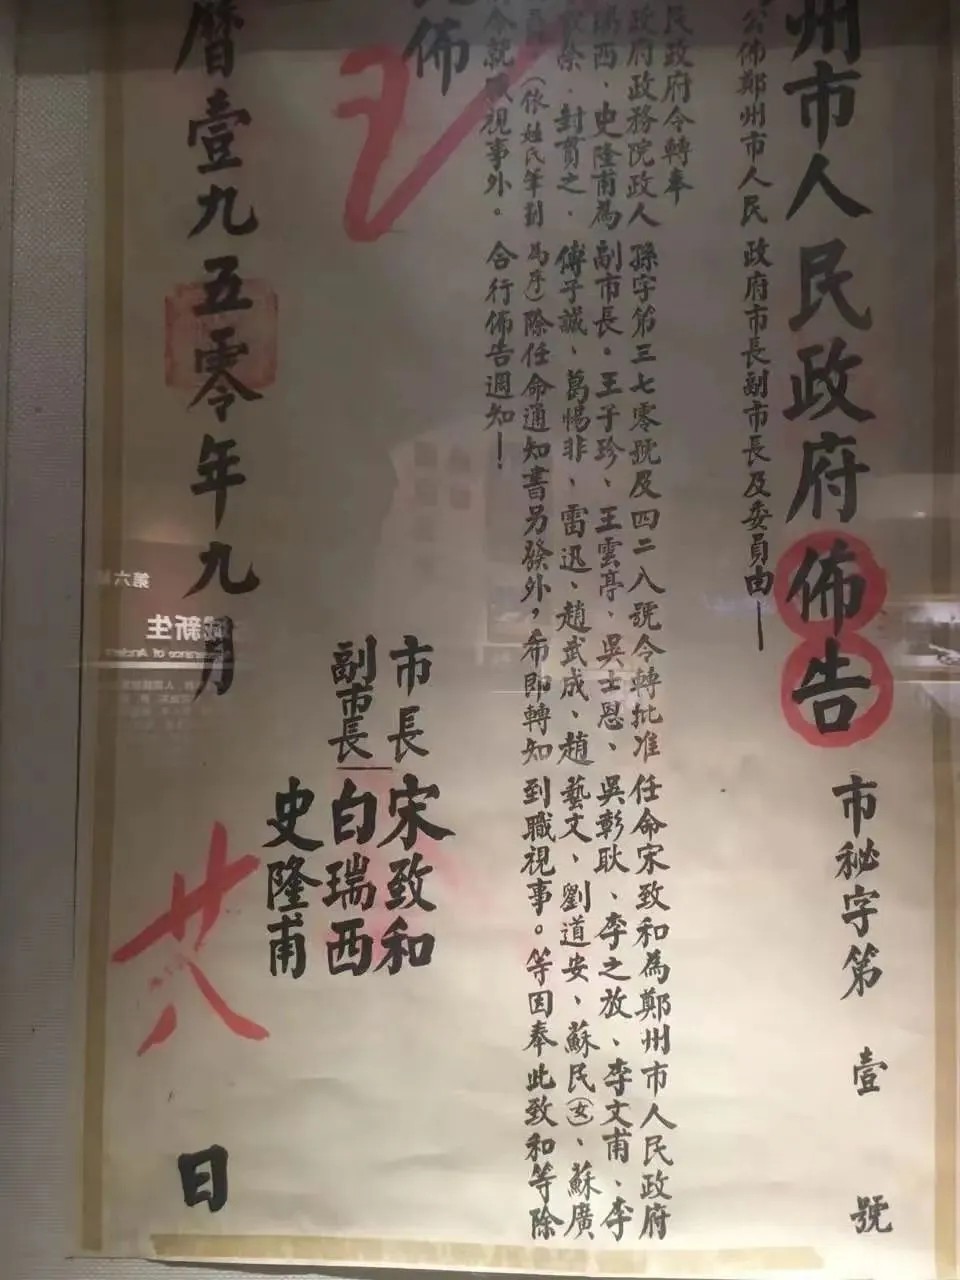 州市人民政府佈告 市秘字第 壹 號
公佈鄭州市人民政府市長副市長及委員由—
民政府令轉奉
政府政務院政人孫字第三七零號及四二八號令轉批准任命宋致和為鄭州市人民政府
瑞西、史隆甫為副市長。王子珍、王雲亭、吳士恩、吳彰耿、李之放、李文甫、李
徐、封貫之、傅子誠、葛惕非、雷迅、趙武成、趙藝文、劉道安、蘇民(女)、蘇廣
(依姓氏筆劃為序)除任命通知書另發外,希即轉知到職視事。等因奉此致和等除
令就職視事外。合行佈告週知!
佈
市長 宋致和
副市長 白瑞西
史隆甫
曆壹九五零年九月廿八日